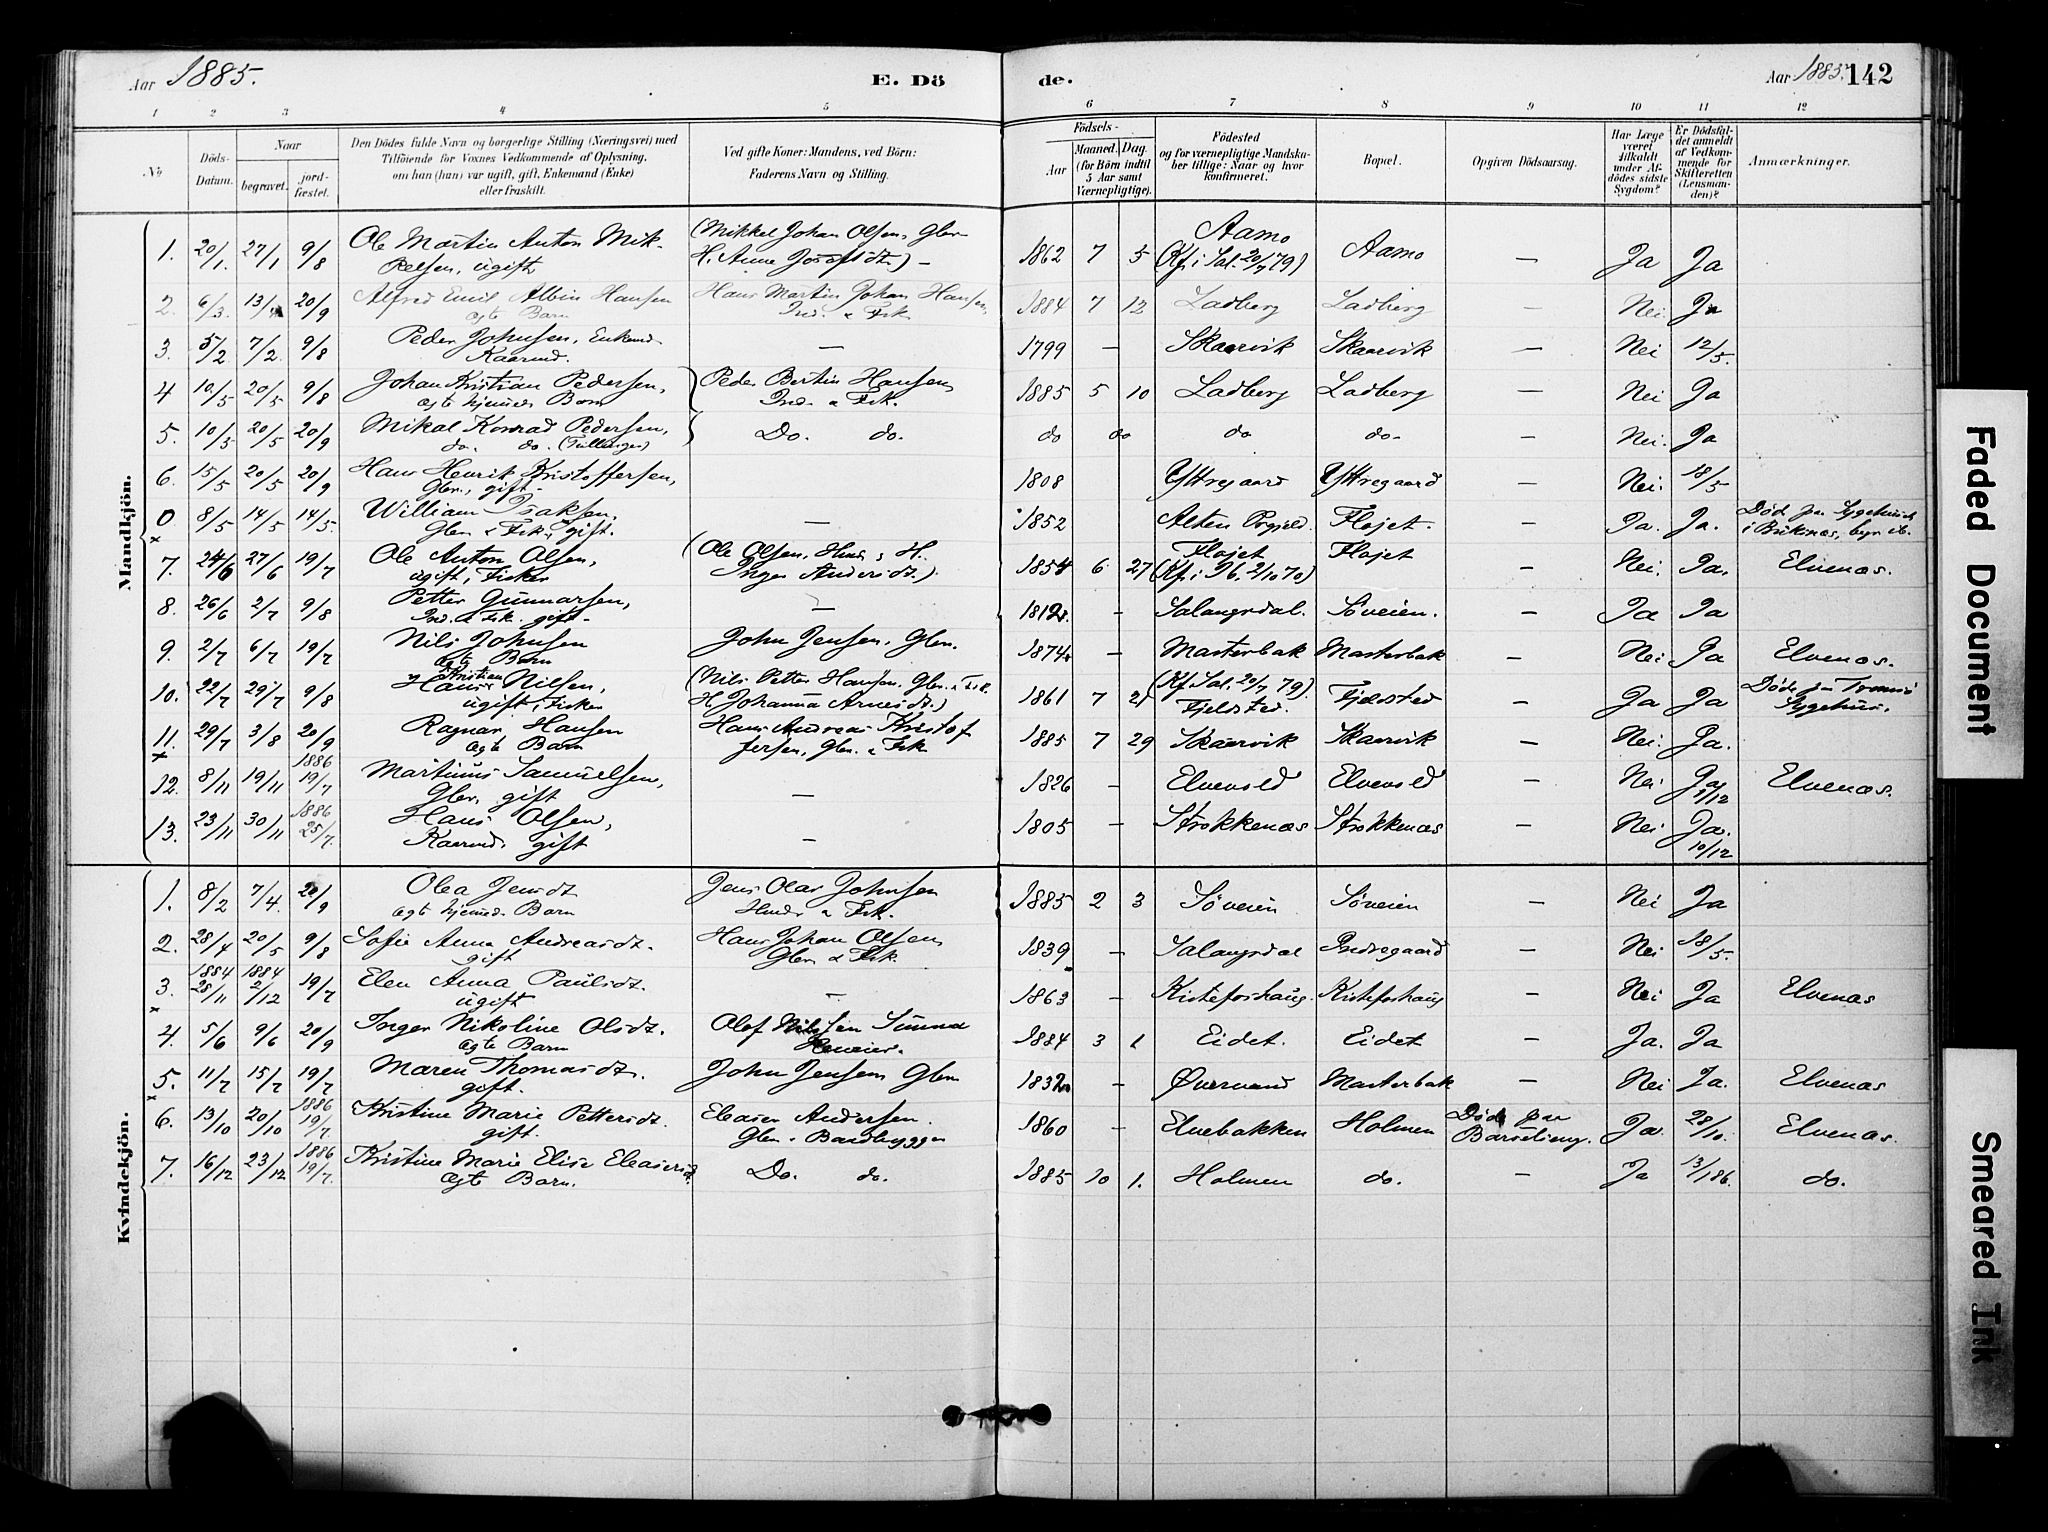 Aar 1885.
E. Dö
de.
Aar 1885. 142
1 2 3 4 5 6 7 8 9 10 11 12
No
Döds-Datum.
Naar
begravet.
jord-fæstet.
Den Dödes fulde Navn og borgerlige Stilling (Næringsvei) med
Tilföiende for Voxnes Vedkommende af Oplysning,
om han (hun) var ugift, gift, Enkemand (Enke)
eller fraskilt.
Ved gifte Koner: Mandens, ved Börn:
Faderens Navn og Stilling.
Födsels-
Aar
Maaned. Dag.
(for Börn indtil
5 Aar samt
Værnepligtige).
Födested
og for værnepligtige Mandska-
ber tillige: Naar og hvor
konfirmeret.
Bopæl.
Opgiven Dödsaarsag.
Har Læge
været
tilkaldt
under Af-
dödes sidste
Sygdom?
Er Dödsfal-
det anmeldt
af Vedkom-
mende for
Skifteretten
(Lensman-
den)?
Anmærkninger.
Mandkjön.
1. 20/1. 27/1 9/8 Ole Martin Anton Mik- (Mikkel Johan Olsen, Gbr. 1862 7 5 Aamo Aamo — Ja Ja
kelsen, ugift H. Anne Josefsdt.) — (Kf. i Sal. 20/7 79)
2. 6/3. 13/4 20/9 Alfred Emil Albin Hansen Hans Martin Johan Hansen, 1884 7 12 Ladberg Ladberg — Nei. Ja
ægte Barn Ind. & Fsk.
3. 5/2 7/2. 9/8 Peder Johnsen, Enkemd. — 1799 — Skaarvik Skaarvik — Nei 12/5.
Kaarmd.
4 10/5 20/5 9/8 Johan Kristian Pedersen, Peder Bertin Hansen 1885 5 10 Ladberg Ladberg — Nei. Ja
ægte hjemmed. Barn Ind. & Fsk.
5. 10/5 20/5 20/9 Mikal Konrad Pedersen, Do. do. do do do do. — Nei. Ja
do. do. (Tvillinger)
6. 15/5 20/5 20/9 Hans Henrik Kristoffersen, 1808 Yttregaard Yttregaard — Nei. 18/5
Gbr., gift —
0 8/5 14/5 14/5. William Isaksen, — 1852 Alten Fløjet. — Ja. Ja. Død paa Sygehuset
Gbr. & Fsk., gift.
7. 24/6 27/6 19/7 Ole Anton Olsen, (Ole Olsen, Husmd. & H. 1854 6 27 Fløjet Fløjet — Nei. Ja. Elvenæs.
ugift, Fisker Inger Andersdt.) (Kf. i Ib. 2/10 70)
8. 26/6 2/7 9/8 Petter Gunnarsen, — 1812. — Salangsdal. Søveien. Ja Ja
Ind. & Fsk. gift —
9. 2/7 6/7 19/7 Nils Johnsen John Jensen, Gbr. 1874. — Masterbak Masterbak — Nei Ja Elvenæs.
ægte Barn
10. 22/7 29/7 9/8 Hans Kristian Nilsen, (Nils Petter Hansen, Gbr. & Fsk. 1861 7 21 (Kf. Sal. 20/7 79) Fjeldsted — Ja Ja Døde paa Tromsø
ugift, Fisker H. Johanna Arnesdt.) Fjeldsted. Sygehus.
11. 29/7 3/8 20/9 Ragnar Hansen Hans Andreas Kristof- 1885 7 29 Skaarvik Skaarvik — Nei. Ja.
ægte Barn fersen, Gbr. & Fsk.
12. 8/11 19/11 1886 19/7 Martinus Samuelsen, — 1826 — Elvevold Elvevold — Nei Ja 1/12 Elvenæs.
Gbr. gift
13. 23/11 30/11 1886 25/7. Hans Olsen, — 1805 — Strokkenæs Strokkenæs — Nei Ja. 10/12
Kaarmd. gift
Kvindekjön.
1. 8/2 7/4. 20/9 Olea Jensdt. Jens Olai Johnsen 1885 2 3 Søveien Søveien — Nei Ja
ægte hjemmed. Barn Husmd. & Fsk.
2. 28/4 20/5 9/8 Sofie Anna Andreasdt. Hans Johan Olsen, 1839 — Salangsdal Indregaard — Nei 18/5.
gift Gbr. & Fsk.
3. 1884 28/11 1884 2/12 19/7 Elen Anna Paulsdt. — 1863 — Kistefoshaug. Kistefoshaug — Nei Ja Elvenæs
ugift
4. 5/6 9/6 20/9 Inger Nikoline Olsdt. Olof Nilssen 1884 3 1 Eidet. Eidet — Ja. Ja
ægte Barn
5. 11/7 15/7 19/7 Maren Thomasdt. John Jensen Gbr. 1832 — Øvervand Masterbak — Nei Ja. Elvenæs
gift.
6. 13/10 20/10 1886 19/7. Kristine Marie Pettersdt. Eleaser Andersen. 1860 — Elvebakken Holmen Døde paa Ja. 28/10. Elvenæs.
gift. Gbr. & Baadbygger Barselseng.
7. 16/12 23/12 1886 19/7. Kristine Marie Elise Eleasersdt. Do. do. 1885 10 1. Holmen do. — Ja 13/1 86. do.
ægte Barn.
Faded Document
Smeared Ink